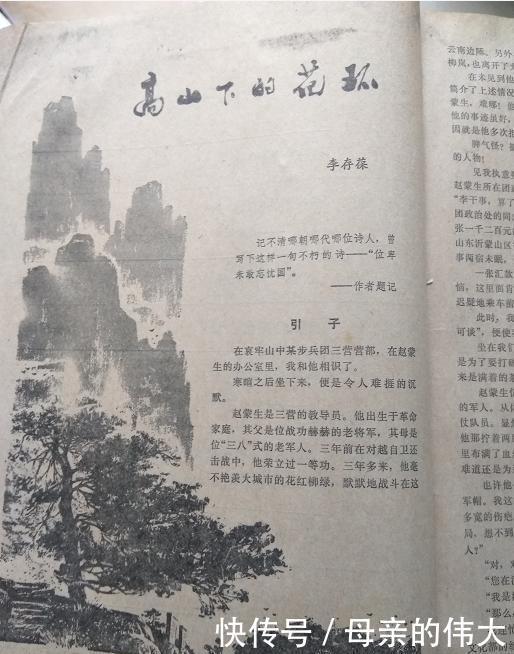 高山下的花环
李存葆
记不清哪朝哪代哪位诗人，曾
写下这样一句不朽的诗——“位卑
未敢忘忧国”。
——作者题记
引子
在哀牢山中某步兵团三营营部，在赵蒙
生的办公室里，我和他相识了。
寒暄之后坐下来，便是令人难捱的沉
默。
赵蒙生是三营的教导员。他出生于革命
家庭，其父是位战功赫赫的老将军，其母是
位“三八”式的老军人。三年前在对越自卫还
击战中，他荣立过一等功。三年多来，他毫
不绝羡大城市的花红柳绿，默默地战斗在这
云南边陲、另外
梅岚，也离开了
在未见到他
简介了上述情况
蒙生，难哪！他
他的事迹虽好，
因就是他多次拒
脾气怪？
的人物！
见我执意
赵蒙生所在团政
“李干事，算了
团政治处的同
张一千二百元的
山东沂蒙山区
事闯宿未眠，
一张汇款
恼，这里面肯
迟疑地乘车前
此时，我
可谈”，便使
坐在我们
是为了要打破
来是满着的
赵蒙生
的军人。从体
仗队员。显然
他那拧着两
里布满了血
难道还是为
也许他
军帽。我这
多宽的伤疤
局，想不到
人？”
“对，对
“您在
“我是
“那么
文化部的
快传号／母亲的伟大